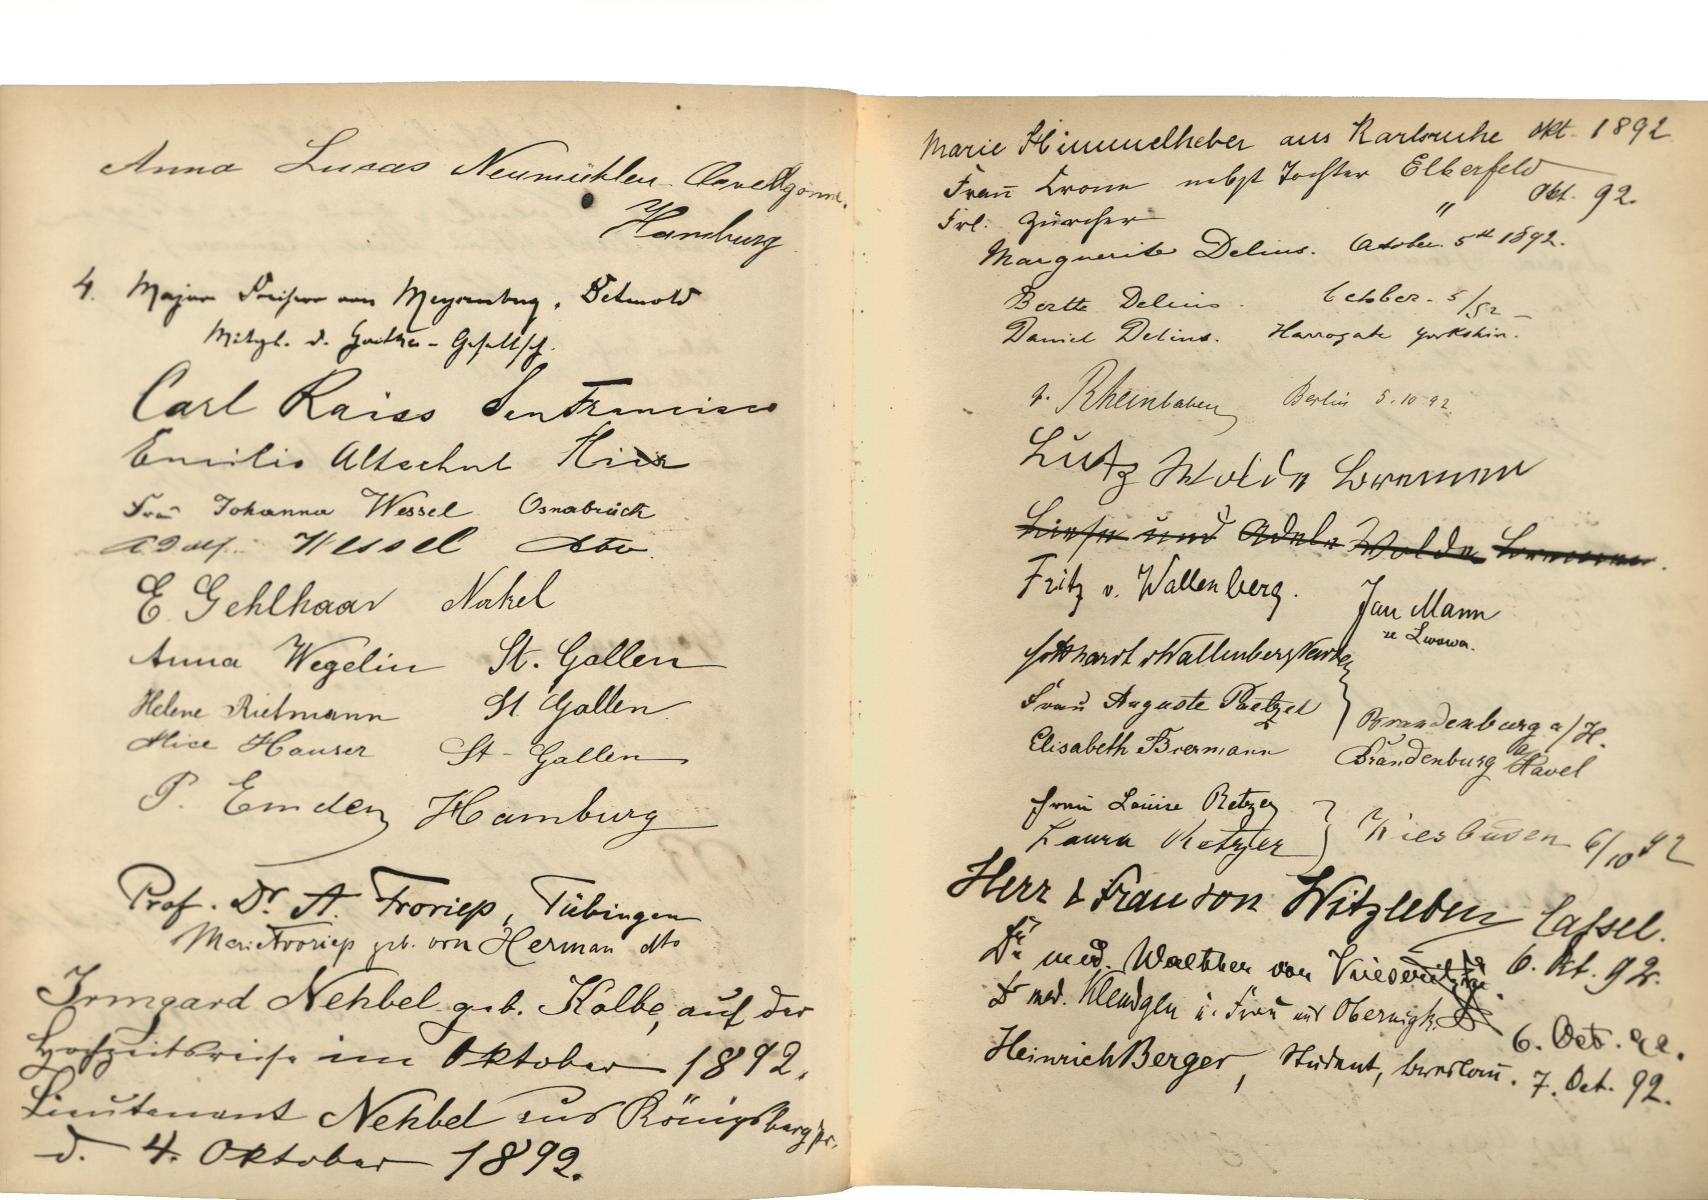 Anna Lucas Neumühlen-Oevelgönne.
Hamburg
4. Major Freiherr von Meysenbug, Detmold
Mitgl. d. Goethe-Gesellsch.
Carl Raiss San Francisco
Emilio Altschul
Frau Johanna Wessel Osnabrück
Adolf Wessel dto
E. Gehlhaar Nakel
Anna Wegelin St. Gallen
Helene Rietmann St. Gallen
Alice Hauser St-Gallen
P. Emden Hamburg
Prof. Dr. A. Froriep, Tübingen
Marie Froriep geb. von Herman dto
Irmgard Nehbel geb. Kolbe, auf der
Hochzeitsreise im Oktober 1892.
Lieutenant Nehbel aus Königsberg i/pr.
d. 4. Oktober 1892.
Marie Himmelheber aus Karlsruhe Okt. 1892
Frau Krone nebst Tochter Elberfeld
Okt. 92.
Frl. Zürcher "
Marguerite Delius. October 5th 1892.
Bertha Delius. October. 5/92
Daniel Delius. Harrogate Yorkshire.
v. Rheinbaben Berlin 5.10.92
Lutz Wolde Bremen
Liese und Adele Wolde Bremen.
Fritz v. Wallenberg.
Jan Mann
ze Lwowa.
Gotthardt v Wallenberg
Frau Auguste Paetzel Brandenburg a/H.
Elisabeth Biermann Brandenburg a/Havel
Frau Louise Retzer
Laura Retzer Wiesbaden 6/10 92
Herr & Frau von Witzleben Cassel.
Dr. med. Walther von 6. Okt. 92.
Dr med. Kleudgen u. Frau aus Obernigk. 6. Oct. 92.
Heinrich Berger, Student, Breslau. 7. Oct. 92.